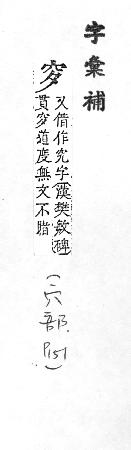 字彙補
穸 又借作究字漢樊敏碑
貫穸道度無文不睹
(穴部 P151)